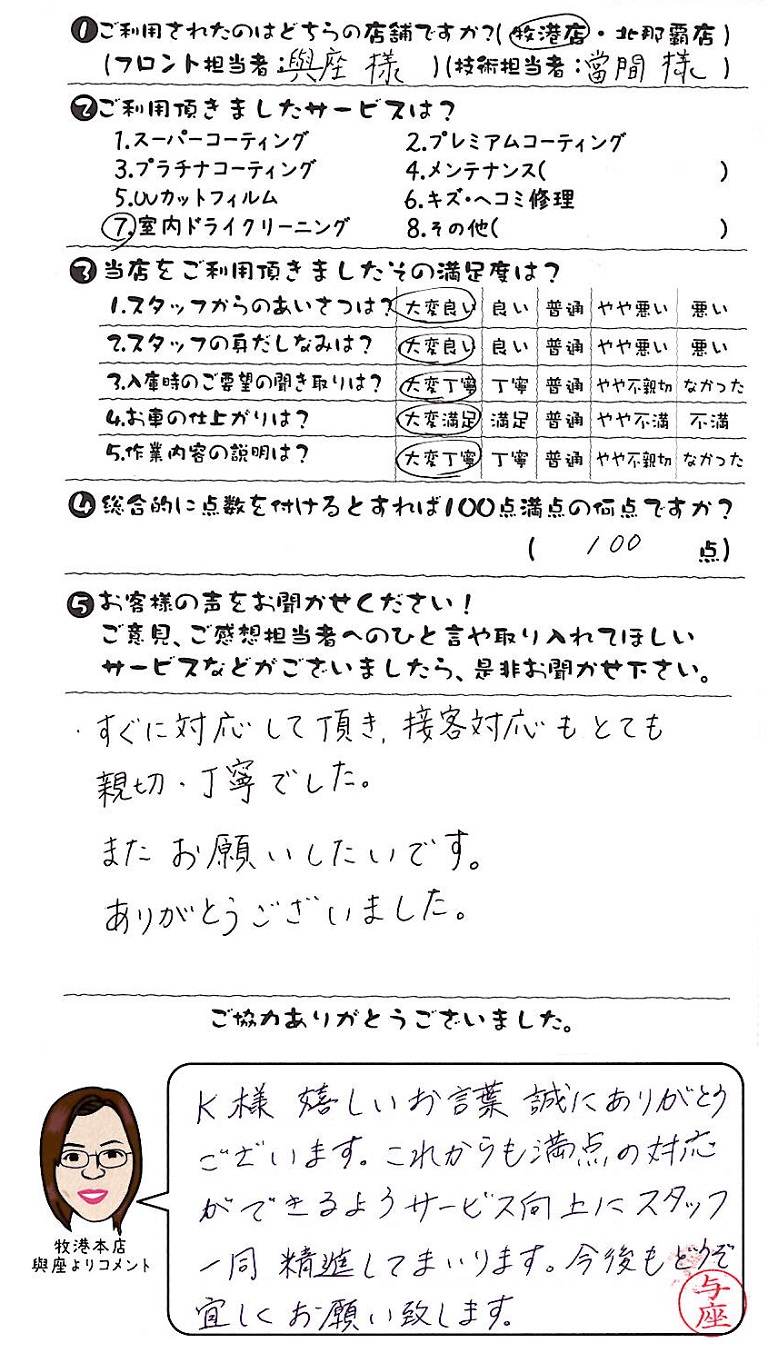 ❶ご利用されたのはどちらの店舗ですか?(牧港店・北那覇店)
(フロント担当者:與座 様 )(技術担当者:當間 様 )
❷ご利用頂きましたサービスは?
1.スーパーコーティング 2.プレミアムコーティング
3.プラチナコーティング 4.メンテナンス( )
5.UVカットフィルム 6.キズ・ヘコミ修理
7.室内ドライクリーニング 8.その他( )
❸当店をご利用頂きましたその満足度は?
1.スタッフからのあいさつは? 大変良い 良い 普通 やや悪い 悪い
2.スタッフの身だしなみは? 大変良い 良い 普通 やや悪い 悪い
3.入庫時のご要望の聞き取りは? 大変丁寧 丁寧 普通 やや不親切 なかった
4.お車の仕上がりは? 大変満足 満足 普通 やや不満 不満
5.作業内容の説明は? 大変丁寧 丁寧 普通 やや不親切 なかった
❹総合的に点数を付けるとすれば100点満点の何点ですか?
( 100 点)
❺お客様の声をお聞かせください!
ご意見、ご感想担当者へのひと言や取り入れてほしい
サービスなどがございましたら、是非お聞かせ下さい。
・すぐに対応して頂き、接客対応もとても
親切・丁寧でした。
またお願いしたいです。
ありがとうございました。
ご協力ありがとうございました。
K様 嬉しいお言葉 誠にありがとう
ございます。これからも満点の対応
ができるようサービス向上にスタッフ
一同 精進してまいります。今後もどうぞ
宜しくお願い致します。
与座
牧港本店
與座よりコメント